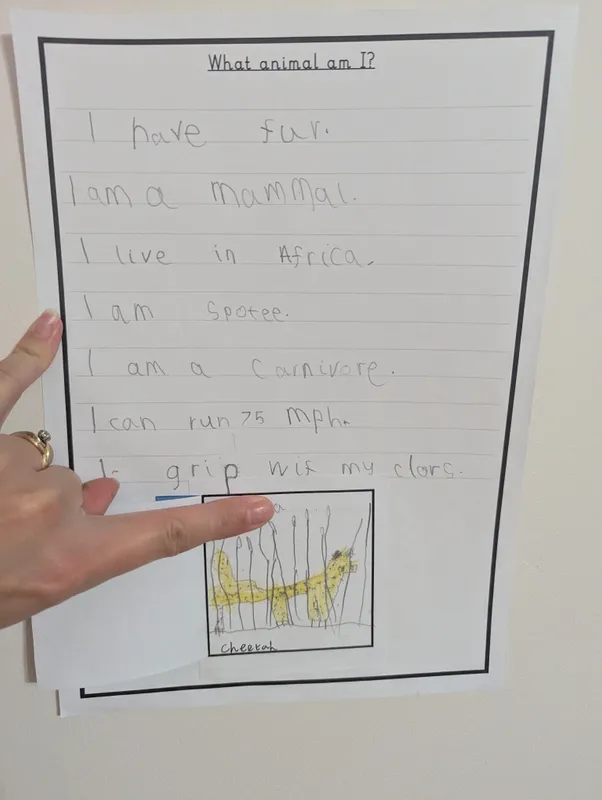 What animal am I?
I have fur.
I am a mammal.
I live in Africa.
I am spotee.
I am a carnivore.
I can run 75 mph.
I grip wif my clors.
a
cheetah